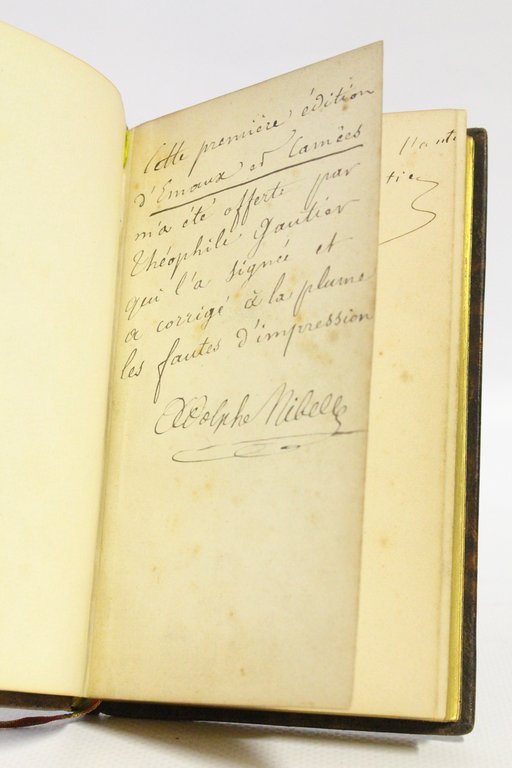 Cette première édition
d'Emaux et Camées
m'a été offerte par
Théophile Gautier
qui l'a signée et
a corrigé à la plume
les fautes d'impression
Adolphe Nibelle
l'aute
tie